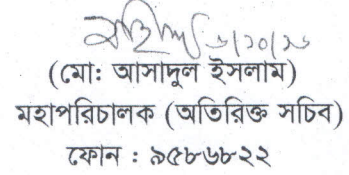 ৬/১০/১৬
(মো: আসাদুল ইসলাম)
মহাপরিচালক (অতিরিক্ত সচিব)
ফোন : ৯৫৮৬৮২২